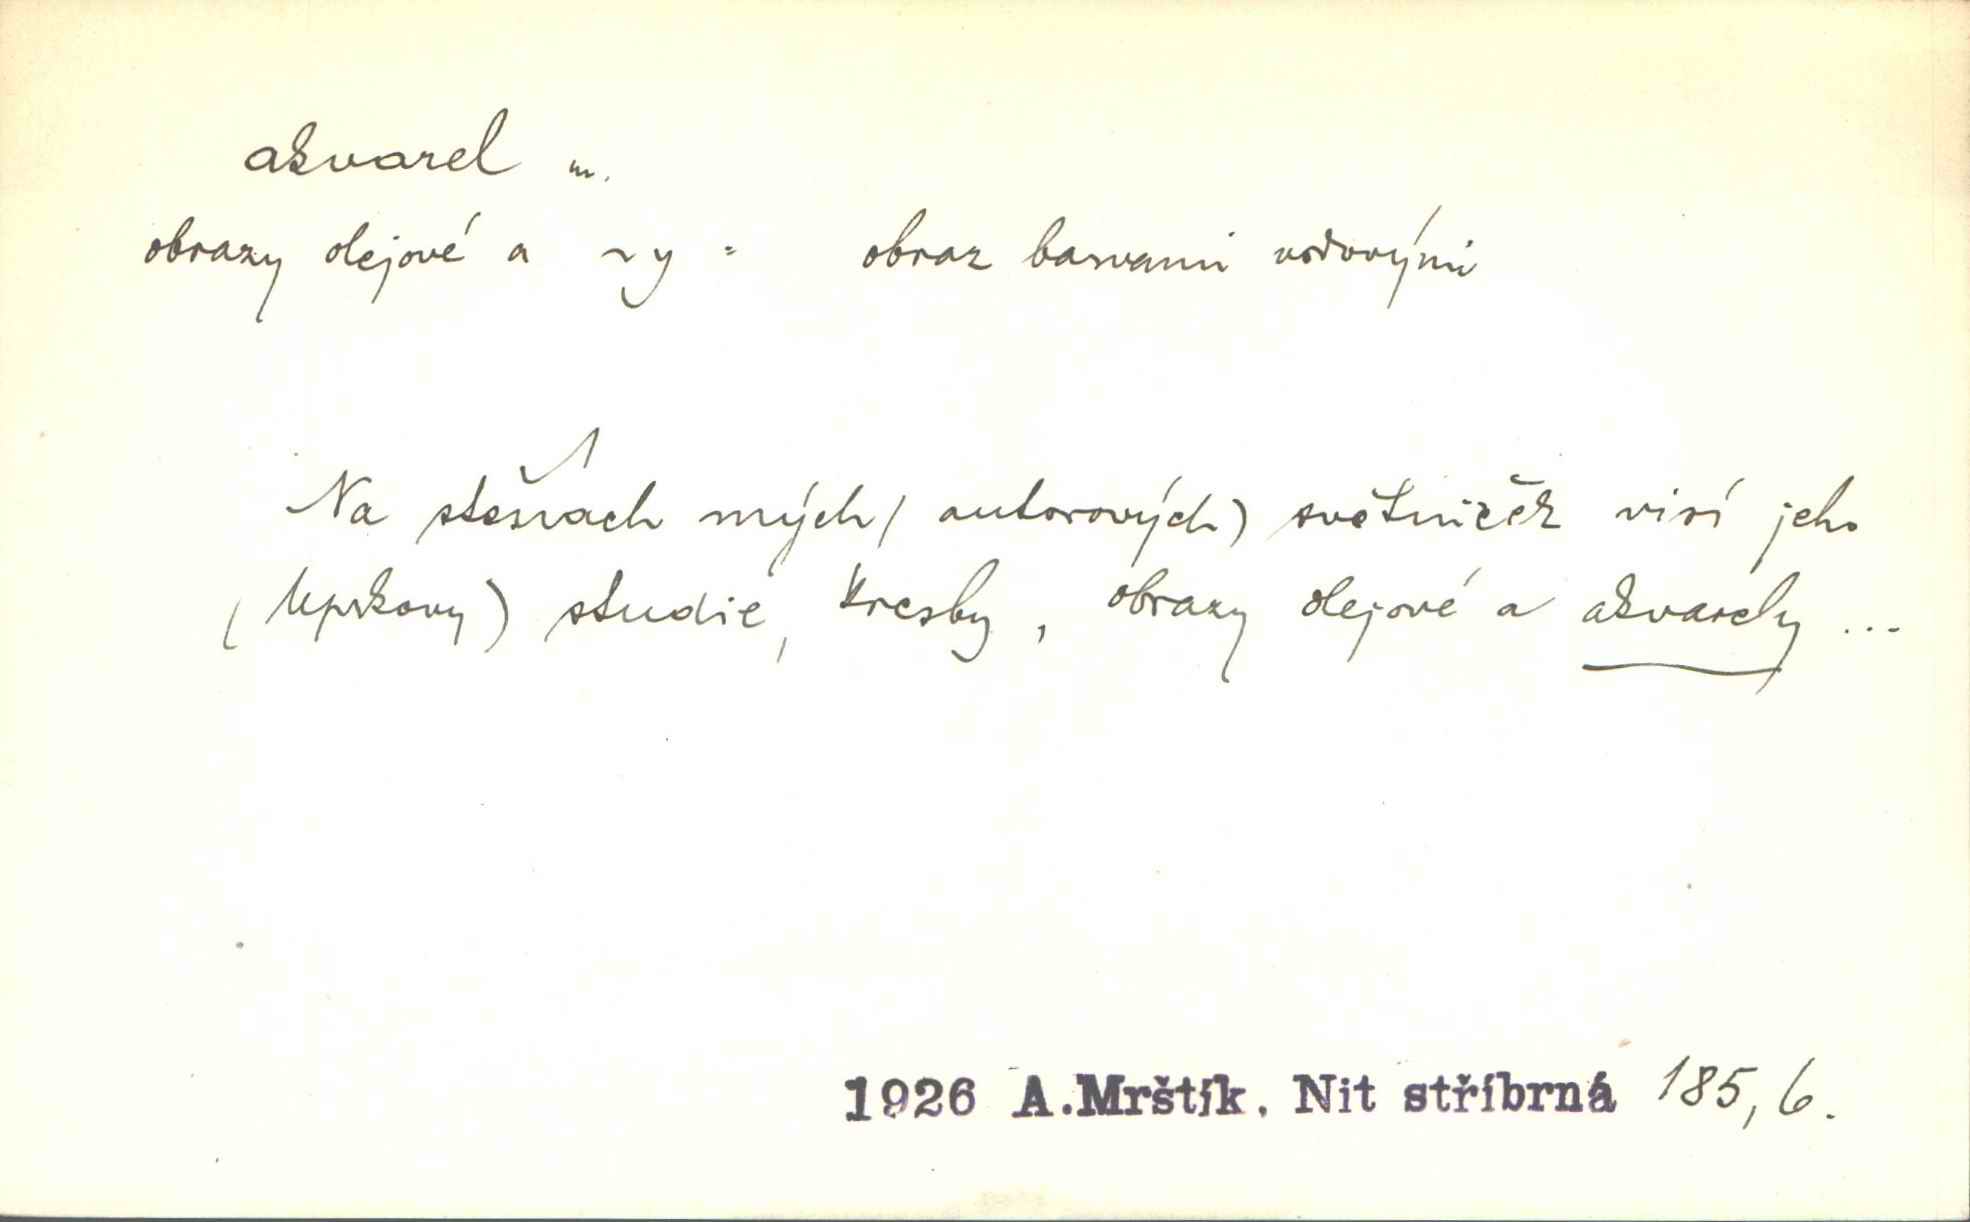 akvarel m.
obrazy olejové a ~y = obraz barvami vodovými
Na stěnách mých (autorových) světniček visí jeho
(Uprkovy) studie, kresby, obrazy olejové a akvarely ...
1926 A.Mrštík. Nit stříbrná 185, 6.